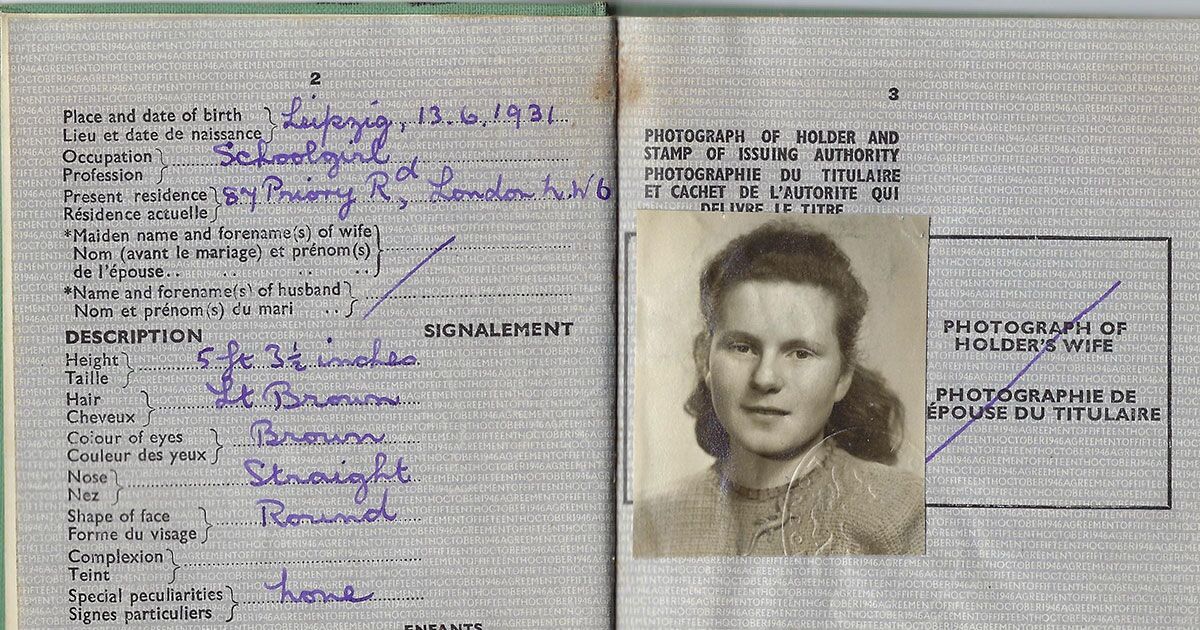 2
Place and date of birth } Leipzig, 13.6.1931
Lieu et date de naissance
Occupation } Schoolgirl
Profession
Present residence } 87 Priory Rd, London N.W6
Résidence actuelle
*Maiden name and forename(s) of wife
Nom (avant le mariage) et prénom(s)
de l'épouse..
*Name and forename(s) of husband
Nom et prénom(s) du mari
DESCRIPTION SIGNALEMENT
Height } 5 ft 3½ inches
Taille
Hair } Lt Brown
Cheveux
Colour of eyes } Brown
Couleur des yeux
Nose } Straight
Nez
Shape of face } Round
Forme du visage
Complexion }
Teint
Special peculiarities } none
Signes particuliers
ENFANTS
3
PHOTOGRAPH OF HOLDER AND
STAMP OF ISSUING AUTHORITY
PHOTOGRAPHIE DU TITULAIRE
ET CACHET DE L'AUTORITE QUI
DELIVRE LE TITRE
PHOTOGRAPH OF
HOLDER'S WIFE
PHOTOGRAPHIE DE
ÉPOUSE DU TITULAIRE